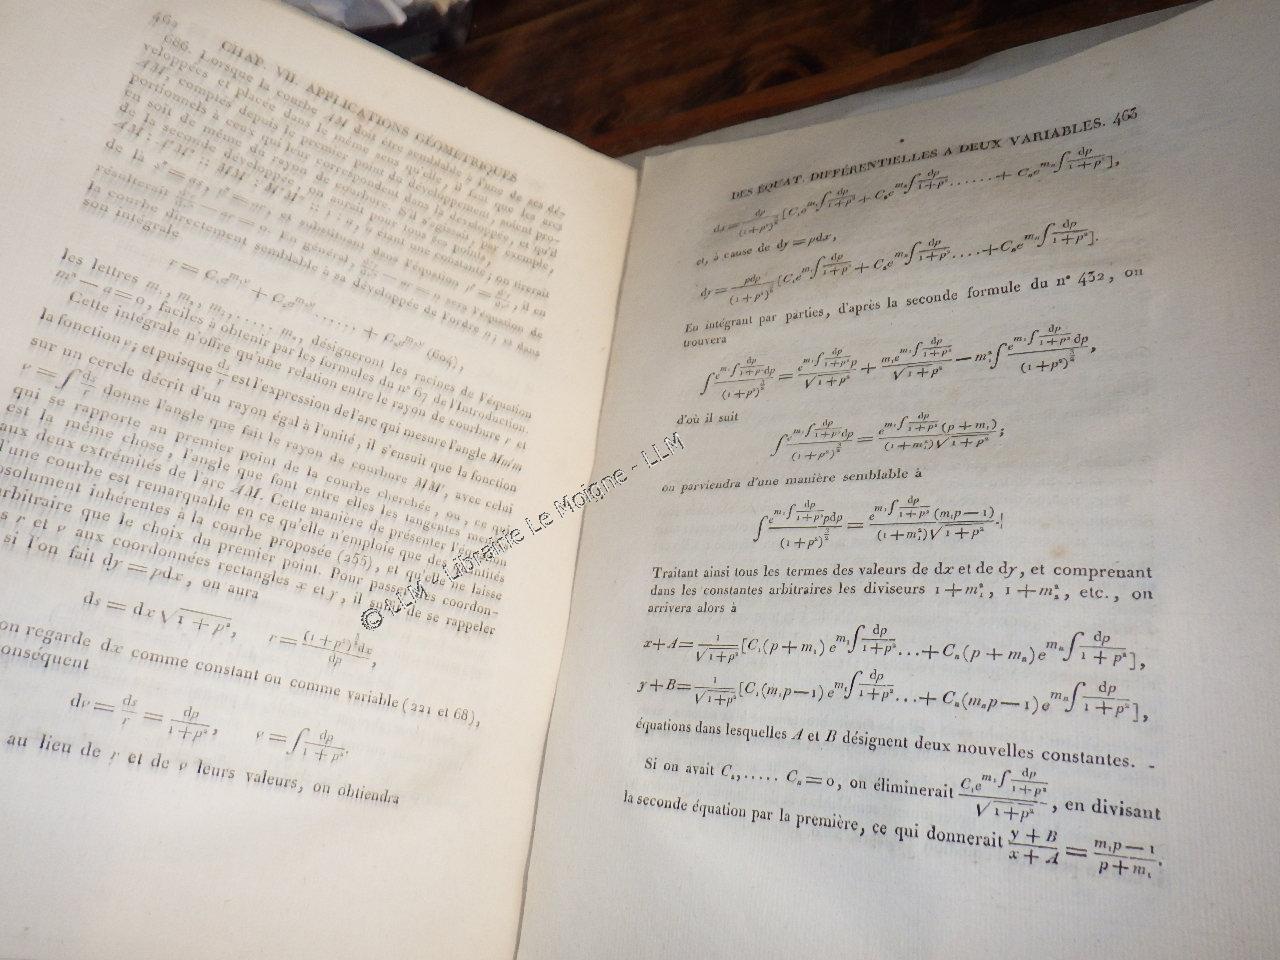 462 CHAP. VII. APPLICATIONS GÉOMÉTRIQUES
686. Lorsque la courbe AM doit être semblable à l'une de ses dé-
veloppées et placée dans le même sens qu'elle, il faut que les arcs
AM, comptés depuis le premier point du développement, soient pro-
portionnels à ceux qui leur correspondent dans la développée, et qu'il
en soit de même du rayon de courbure. S'il s'agissait, par exemple,
de la seconde développée, on aurait pour tous ses points,
a étant une constante; on tirerait
de là et substituant dans l'équation il en
résulterait En général, sera l'équation de
la courbe directement semblable à sa développée de l'ordre n; et dans
son intégrale
les lettres m₁, m₂, m₃, ..... mₙ, désigneront les racines de l'équation
mⁿ — a = 0, faciles à obtenir par les formules du nº 67 de l'Introduction.
Cette intégrale n'offre qu'une relation entre le rayon de courbure r et
la fonction ν; et puisque ds/r est l'expression de l'arc qui mesure l'angle
sur un cercle décrit d'un rayon égal à l'unité, il s'ensuit que la fonction
ν = ∫ ds/r donne l'angle que fait le rayon de courbure MM', avec celui
qui se rapporte au premier point de la courbe cherchée, ou, ce qui
est la même chose, l'angle que font entre elles les tangentes menées
aux deux extrémités de l'arc AM. Cette manière de présenter l'équation
d'une courbe est remarquable en ce qu'elle n'emploie que des quantités
absolument inhérentes à la courbe proposée (255), et qu'elle ne laisse
arbitraire que le choix du premier point. Pour passer des coordon-
r et ν aux coordonnées rectangles x et y, il suffit de se rappeler
si l'on fait dy = pdx, on aura
ds = dx√1 + p², r = (1 + p²)^(3/2) dx / dp,
on regarde dx comme constant ou comme variable (221 et 68),
conséquent
dν = ds/r = dp/(1 + p²), ν = ∫ dp/(1 + p²).
au lieu de r et de ν leurs valeurs, on obtiendra
DES ÉQUAT. DIFFÉRENTIELLES A DEUX VARIABLES. 463
dx = dp/(1 + p²)^(3/2) [C₁e^(m₁∫dp/(1+p²)) + C₂e^(m₂∫dp/(1+p²)) ...... + Cₙe^(mₙ∫dp/(1+p²))],
et, à cause de dy = pdx,
dy = pdp/(1 + p²)^(3/2) [C₁e^(m₁∫dp/(1+p²)) + C₂e^(m₂∫dp/(1+p²)) .... + Cₙe^(mₙ∫dp/(1+p²))].
En intégrant par parties, d'après la seconde formule du nº 432, on
trouvera
∫ e^(m₁∫dp/(1+p²)) dp/(1+p²)^(3/2) = e^(m₁∫dp/(1+p²)) p/√1+p² + m₁e^(m₁∫dp/(1+p²))/√1+p² — m₁² ∫ e^(m₁∫dp/(1+p²)) dp/(1+p²)^(3/2),
d'où il suit
∫ e^(m₁∫dp/(1+p²)) dp/(1+p²)^(3/2) = e^(m₁∫dp/(1+p²)) (p + m₁)/(1+m₁²)√1+p²;
on parviendra d'une manière semblable à
∫ e^(m₁∫dp/(1+p²)) pdp/(1+p²)^(3/2) = e^(m₁∫dp/(1+p²)) (m₁p — 1)/(1+m₁²)√1+p².
Traitant ainsi tous les termes des valeurs de dx et de dy, et comprenant
dans les constantes arbitraires les diviseurs 1 + m₁², 1 + m₂², etc., on
arrivera alors à
x + A = 1/√1+p² [C₁(p + m₁) e^(m₁∫dp/(1+p²)) ... + Cₙ(p + mₙ) e^(mₙ∫dp/(1+p²))],
y + B = 1/√1+p² [C₁(m₁p — 1) e^(m₁∫dp/(1+p²)) ... + Cₙ(mₙp — 1) e^(mₙ∫dp/(1+p²))],
équations dans lesquelles A et B désignent deux nouvelles constantes.
Si on avait C₂, ..... Cₙ = 0, on éliminerait C₁e^(m₁∫dp/(1+p²))/√1+p², en divisant
la seconde équation par la première, ce qui donnerait (y + B)/(x + A) = (m₁p — 1)/(p + m₁).
© LLM - Librairie Le Moigne - LLM